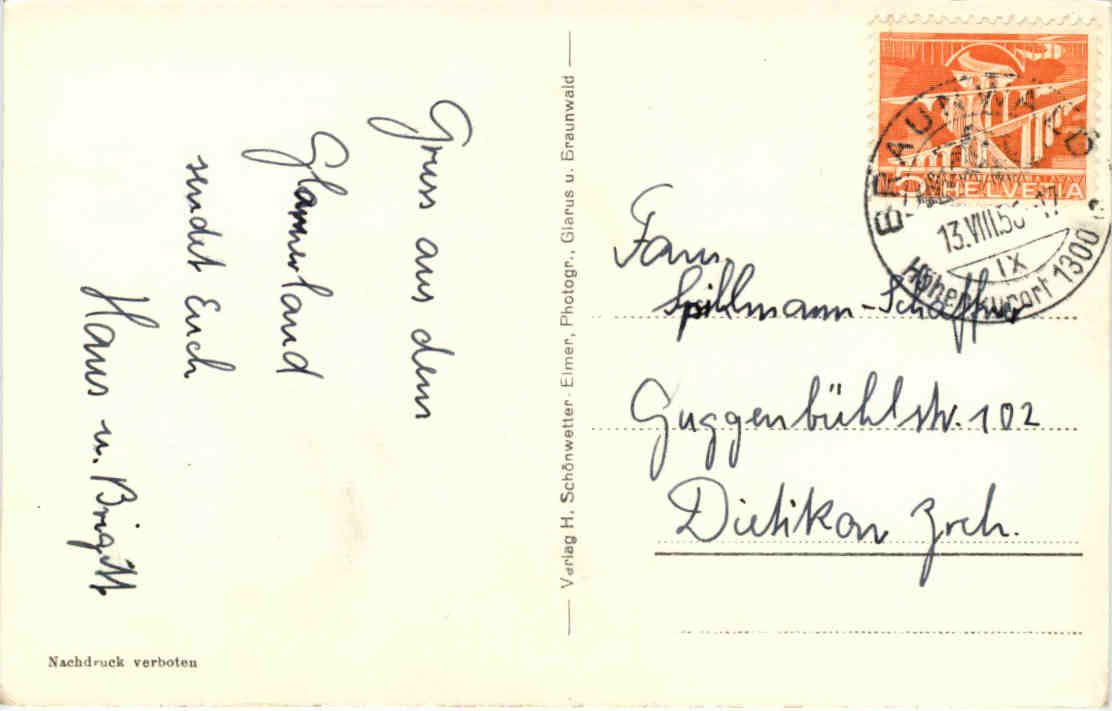 Gruss aus dem
Glarnerland
sendet Euch
Hans u. Brigitt
Nachdruck verboten
Verlag H. Schönwetter-Elmer, Photogr., Glarus u. Braunwald
5 HELVETIA
BRAUNWALD
13.VIII.56-17
IX
Höhenkurort 1300
Fam.
Spillmann-Schaffner
Guggenbühlstr. 102
Dietikon Zrch.